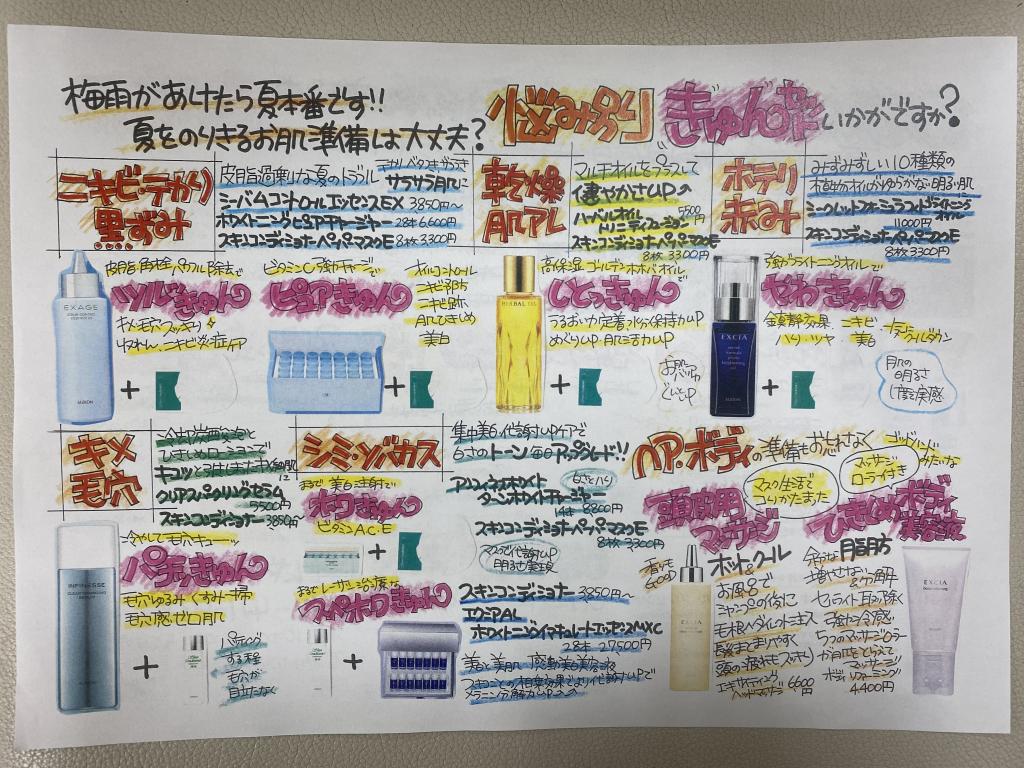 梅雨があけたら夏本番です!!
夏をのりきるお肌準備は大丈夫?
悩み別り ぎゅんウャいかがですか?
ニキビ・テカリ
黒ずみ
皮脂過剰な夏のトラブル
サラサラ肌に
シーバムコントロールエッセンスEX 3850円〜
ホワイトニングピュアチャージャー 28本 6.600円
スキンコンディショナーペイパーマスクE 8枚 3300円
乾燥
肌アレ
マルチオイルをプラスして
健やかさUPへ
ハーバルオイル
トリニティフュージョン
5500円
スキンコンディショナーペイパーマスクE
8枚 3300円
ホテリ
赤み
みずみずしい10種類の
植物オイルがゆらがない明るい肌
シークレットフォーミュラ ブライトニング
オイル
11000円
スキンコンディショナーペイパーマスクE
8枚 3300円
皮脂・角栓パワフル除去で
ツルきゅん
キメ・毛穴スッキリ
ゆるみ、ニキビ炎症ケア
EXAGE
ALBION
+
ビタミンC強化チャージで
ピュアきゅん
オイルコントロール
ニキビ予防
ニキビ跡
肌ひきしめ
美白
+
高保湿 ゴールデンホホバオイルで
じとっきゅん
うるおい力定着・水分保持力UP
めぐりUP・肌活力UP
HERBAL OIL
+
お肌
くいっとUP
強力ブライトニングオイルで
やわきゅん
鎮静効果、ニキビ
ハリ・ツヤ 美白
クールダウン
EXCIA
ALBION
+
肌の
明るさ
1段実感
キメ
毛穴
冷却炭酸泡と
ひきしめローションで
キュッとひきしまったキメ細肌
に
クリアスパークリングセラム
5500円
スキンコンディショナー 3850円
冷やして毛穴キューッ
パチッきゅん
毛穴ゆるみ くすみ一掃
毛穴感ゼロ肌
INFINESSE
+
パッティング
する程
毛穴が
目立たなく
シミ・ソバカス
集中美白・代謝UPケアで
白さのトーンを毎日アップグレード!!
まるで美白注射で
ホワきゅん
ビタミンA.C.E
+
アンフィネスホワイト
ターンホワイトチャージャー
14本 8800円
白さとハリ
スキンコンディショナーペイパーマスクE
8枚 3300円
マスクで代謝UP
明るさ実現
まるでレーザー治療な
スーパーホワきゅん
+
スキンコンディショナー 3850円〜
エクシアAL
ホワイトニングイマキュレートエッセンスMXC
28本 27500円
美白と美肌
スキコンとの相乗効果でより代謝UPで
メラニン分解力UPへ
ヘア・ボディの準備もお忘れなく
マスク生活で
コリがたまった
マッサージ
ローラー付き
ゴッドハンド
みたいな
頭皮用
マッサージ
ひきしめボディ
美容液
ホット&クール
お風呂で
シャンプーの後に
毛根へダイレクト注入
髪がまとまりやすく
頭の疲れもスッキリ
エキサイティング
ヘッドマッサージ
6600円
余分な脂肪
増やさない&分解
セルライト取り除く
強力な冷感
5つのマッサージローラー
が肌をとらえて
マッサージ
ボディ リフォーミング
4.400円
EXCIA
EXCIA